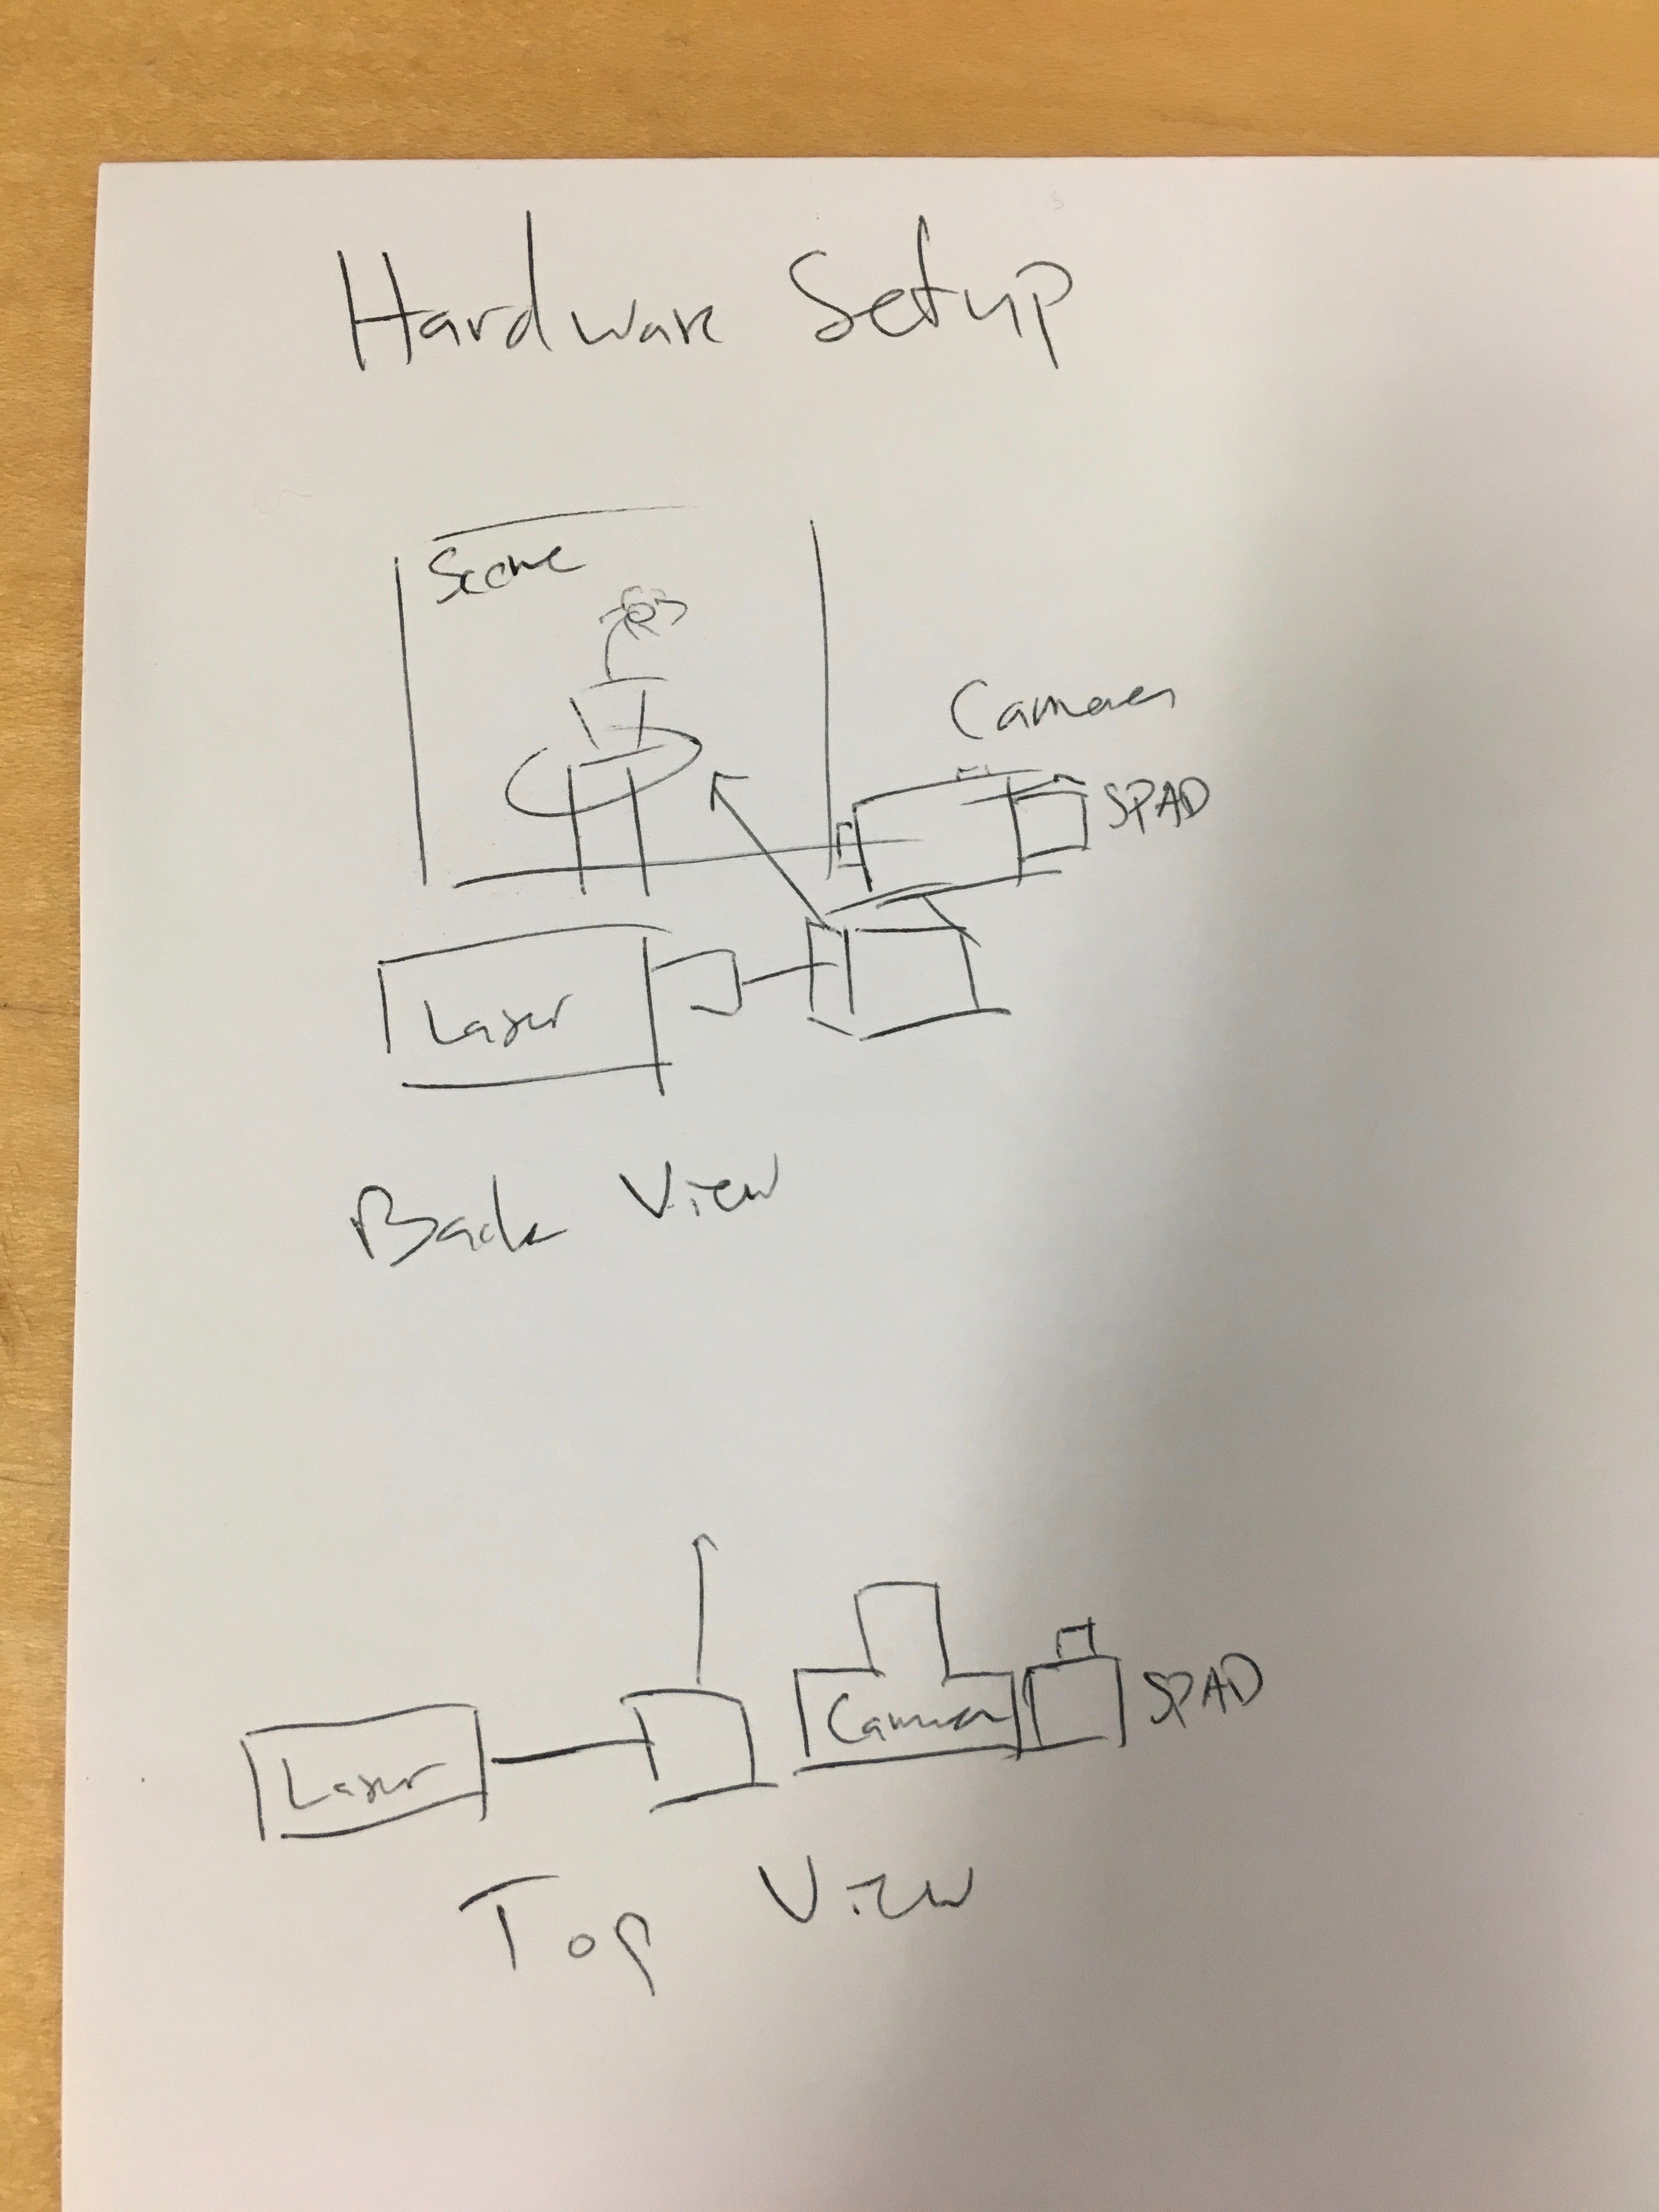 Hardware Setup
Scene
Camera
SPAD
Laser
Back View
Camera
SPAD
Laser
Top View